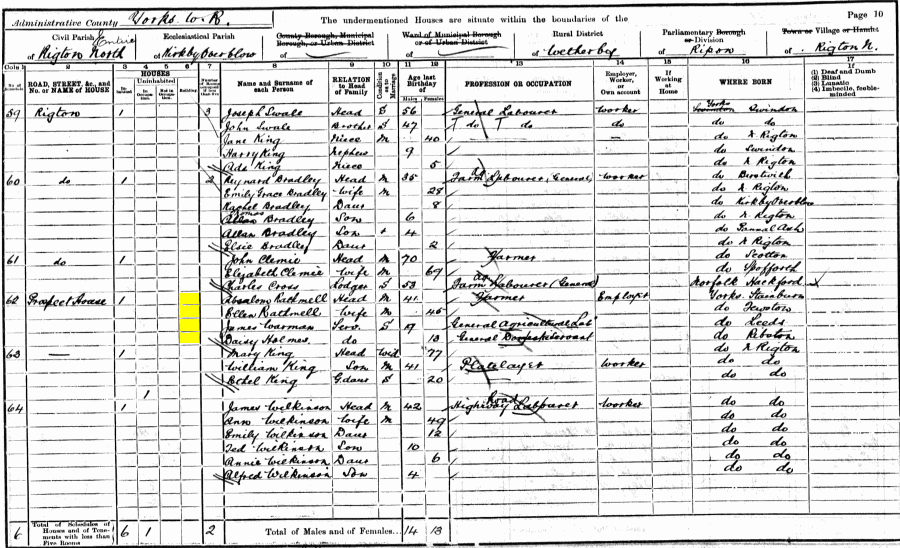 Administrative County Yorks. W. R. The undermentioned Houses are situate within the boundaries of the Page 10
Civil Parish Entire of Rigton North
Ecclesiastical Parish of Kirkby Overblow
County Borough, Municipal Borough, or Urban District
Ward of Municipal Borough or of Urban District
Rural District of Wetherby
Parliamentary Borough or Division of Ripon
Town or Village or Hamlet of Rigton N.
Cols 1 2 3 4 5 6 7 8 9 10 11 12 13 14 15 16 17
ROAD, STREET, &c., and No. or NAME of HOUSE HOUSES Inhabited Uninhabited Building Name and Surname of each Person RELATION to Head of Family Condition as to Marriage Age last Birthday of Males Females PROFESSION OR OCCUPATION Employer, Worker, or Own account If Working at Home WHERE BORN If (1) Deaf and Dumb (2) Blind (3) Lunatic (4) Imbecile, feeble-minded
59 Rigton 1 3 Joseph Swale Head S 56 General Labourer Worker Yorks Swindon
John Swale Brother S 47 do do do do
Jane King Niece M 40 — do N. Rigton
Harry King Nephew 9 do Swindon
Ada King Niece 5 do N. Rigton
60 do 1 2 Reynard Bradley Head M 35 Farm Labourer (General) Worker do Birstwith
Emily Grace Bradley Wife M 28 do N. Rigton
Rachel Bradley Daur 8 do Kirkby Overblow
Thomas Bradley Son 6 do N. Rigton
Allan Bradley Son 4 do Pannal Ash
Elsie Bradley Daur 2 do N. Rigton
61 do 1 John Clemie Head M 70 Farmer do Scotton
Elizabeth Clemie Wife M 69 do Spofforth
Charles Cross Lodger S 53 Farm Labourer (General) Norfolk Hackford
62 Prospect House 1 Absalom Rathmell Head M 41 Farmer Employer Yorks. Stainburn
Ellen Rathmell Wife M 45 do Fewston
James Warman Serv. S 19 General Agricultural Lab do Leeds
Daisy Holmes do 13 General Domestic Servant do Ribston
63 — 1 Mary King Head Wid 77 do N. Rigton
William King Son M 41 Platelayer Worker do do
Ethel King G. daur S 20 do do
1
64 1 James Wilkinson Head M 42 Highway Labourer Road Worker do do
Ann Wilkinson Wife M 49 do do
Emily Wilkinson Daur 12 do do
Ted Wilkinson Son 10 do do
Annie Wilkinson Daur 6 do do
Alfred Wilkinson Son 4 do do
6 Total of Schedules of Houses and of Tenements with less than Five Rooms 6 1 2 Total of Males and of Females... 14 13